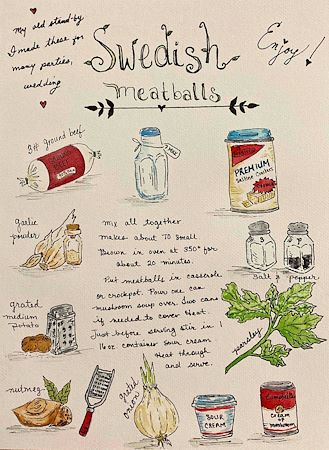 My old stand-by
I made these for
many parties,
wedding
Swedish
meatballs
Enjoy!
3# ground beef
GROUND
BEEF
Milk
PREMIUM
Saltine Crackers
garlic
powder
mix all together
makes about 70 small
Brown in oven at 350° for
about 20 minutes.
Put meatballs in casserole
or crockpot. Pour one can
mushroom soup over. Two cans
if needed to cover meat.
Just before serving stir in 1
16 oz container sour cream
Heat through
and serve.
S
P
salt & pepper
grated
medium
potato
parsley
nutmeg
grated
onion
SOUR
CREAM
Campbell's
Cream of
mushroom